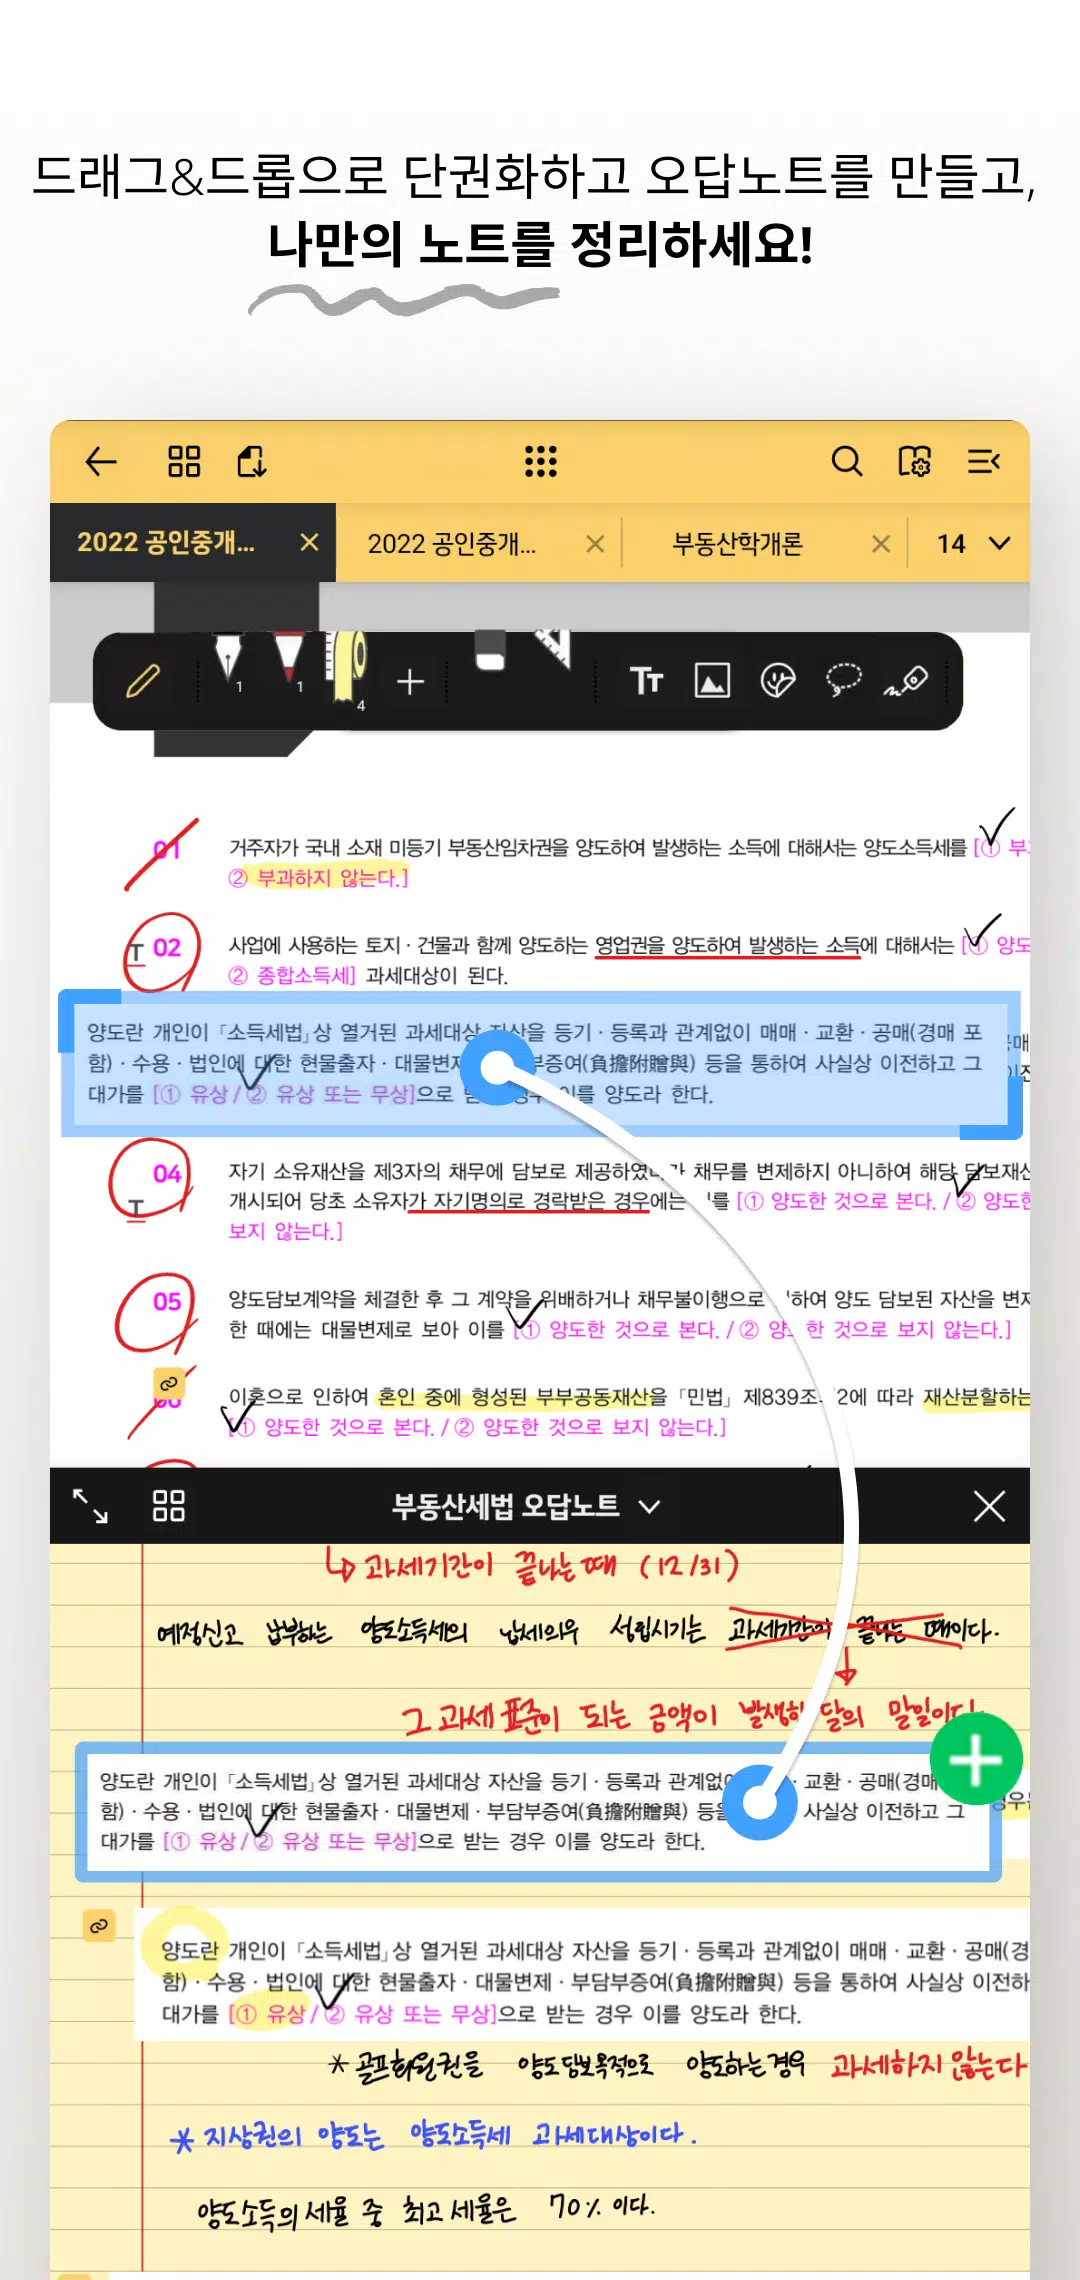 드래그&드롭으로 단권화하고 오답노트를 만들고,
나만의 노트를 정리하세요!
2022 공인중개...
2022 공인중개...
부동산학개론
14
1
1
4
Tт
01
거주자가 국내 소재 미등기 부동산임차권을 양도하여 발생하는 소득에 대해서는 양도소득세를 [① 부
② 부과하지 않는다.]
T 02
사업에 사용하는 토지 · 건물과 함께 양도하는 영업권을 양도하여 발생하는 소득에 대해서는 [① 양도
② 종합소득세] 과세대상이 된다.
양도란 개인이 「소득세법」상 열거된 과세대상 자산을 등기 · 등록과 관계없이 매매 · 교환 · 공매(경매 포
함) · 수용 · 법인에 대한 현물출자 · 대물변제 부증여(負擔附贈與) 등을 통하여 사실상 이전하고 그
대가를 [① 유상 / ② 유상 또는 무상]으로 이를 양도라 한다.
04
T
자기 소유재산을 제3자의 채무에 담보로 제공하였 채무를 변제하지 아니하여 해당 담보재산
개시되어 당초 소유자가 자기명의로 경락받은 경우에는 를 [① 양도한 것으로 본다. / ② 양도한
보지 않는다.]
05
양도담보계약을 체결한 후 그 계약을 위배하거나 채무불이행으로 하여 양도 담보된 자산을 변제
한 때에는 대물변제로 보아 이를 [① 양도한 것으로 본다. / ② 양 한 것으로 보지 않는다.]
06
이혼으로 인하여 혼인 중에 형성된 부부공동재산을 「민법」 제839조 2에 따라 재산분할하는
[① 양도한 것으로 본다. / ② 양도한 것으로 보지 않는다.]
부동산세법 오답노트
↳ 과세기간이 끝나는때 (12/31)
예정신고 납부하는 양도소득세의 납세의무 성립시기는 과세기간이 끝나는 때이다.
그 과세표준이 되는 금액이 발생한 달의 말일이다.
양도란 개인이 「소득세법」상 열거된 과세대상 자산을 등기 · 등록과 관계없 · 교환 · 공매(경매
함) · 수용 · 법인에 대한 현물출자 · 대물변제 · 부담부증여(負擔附贈與) 등 사실상 이전하고 그
대가를 [① 유상 / ② 유상 또는 무상]으로 받는 경우 이를 양도라 한다.
양도란 개인이 「소득세법」상 열거된 과세대상 자산을 등기 · 등록과 관계없이 매매 · 교환 · 공매(경
함) · 수용 · 법인에 대한 현물출자 · 대물변제 · 부담부증여(負擔附贈與) 등을 통하여 사실상 이전하
대가를 [① 유상 / ② 유상 또는 무상]으로 받는 경우 이를 양도라 한다.
* 골프회원권을 양도담보목적으로 양도하는경우 과세하지 않는다
* 지상권의 양도는 양도소득세 과세대상이다.
양도소득의 세율 중 최고세율은 70% 이다.